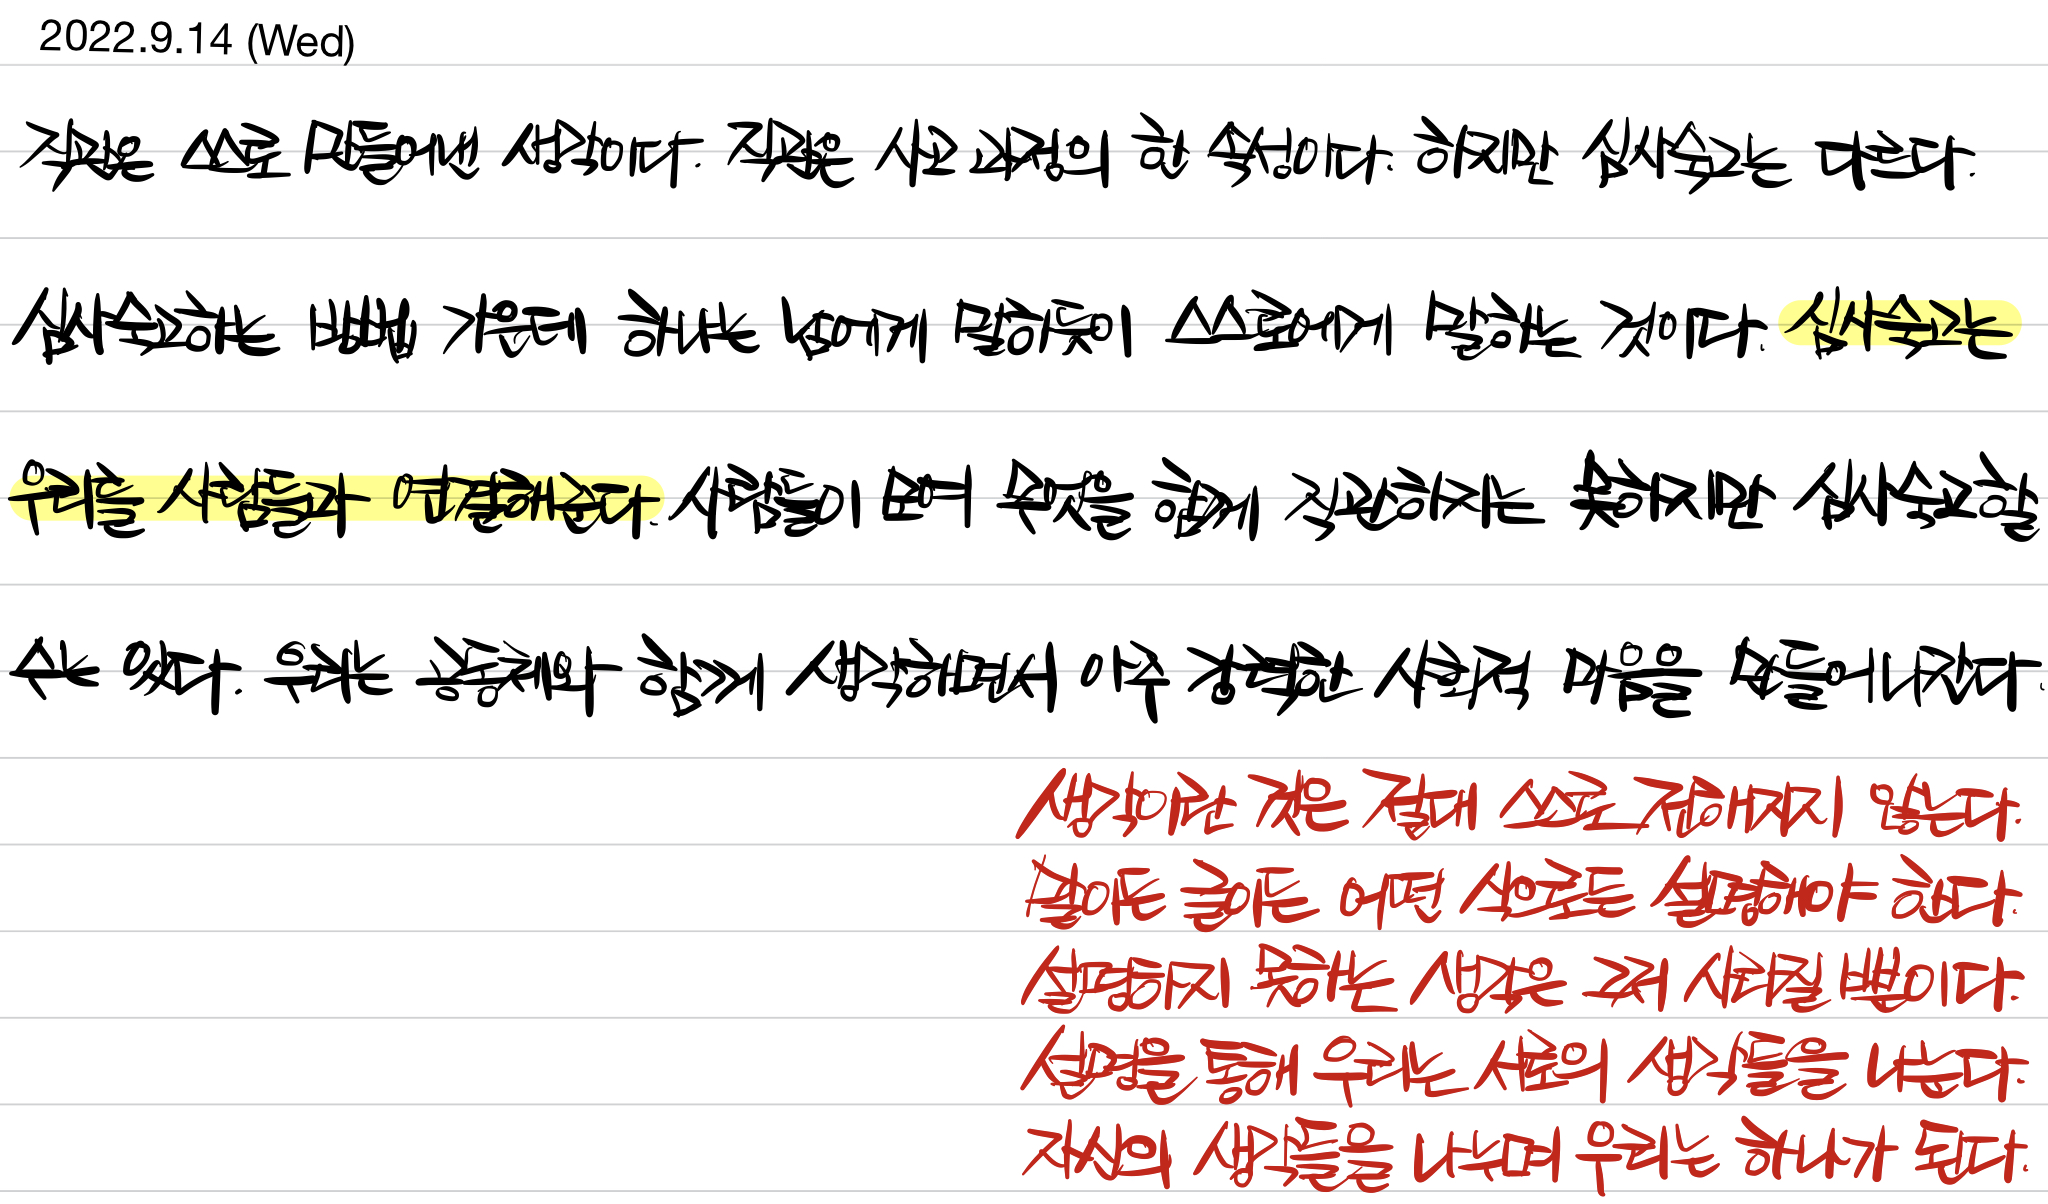 2022.9.14 (Wed)
직관은 스스로 만들어낸 생각이다. 직관은 사고 과정의 한 속성이다. 하지만 심사숙고는 다르다.
심사숙고하는 방법 가운데 하나는 남에게 말하듯이 스스로에게 말하는 것이다. 심사숙고는
우리를 사람들과 연결해준다. 사람들이 모여 무엇을 함께 직관하지는 못하지만 심사숙고할
수는 있다. 우리는 공동체와 함께 생각하면서 아주 강력한 사회적 마음을 만들어나간다.
생각이란 것은 절대 스스로 전해지지 않는다.
말이든 글이든 어떤 식으로든 설명해야 한다.
설명하지 못하는 생각은 그저 사라질 뿐이다.
설명을 통해 우리는 서로의 생각들을 나눈다.
자신의 생각들을 나누며 우리는 하나가 된다.